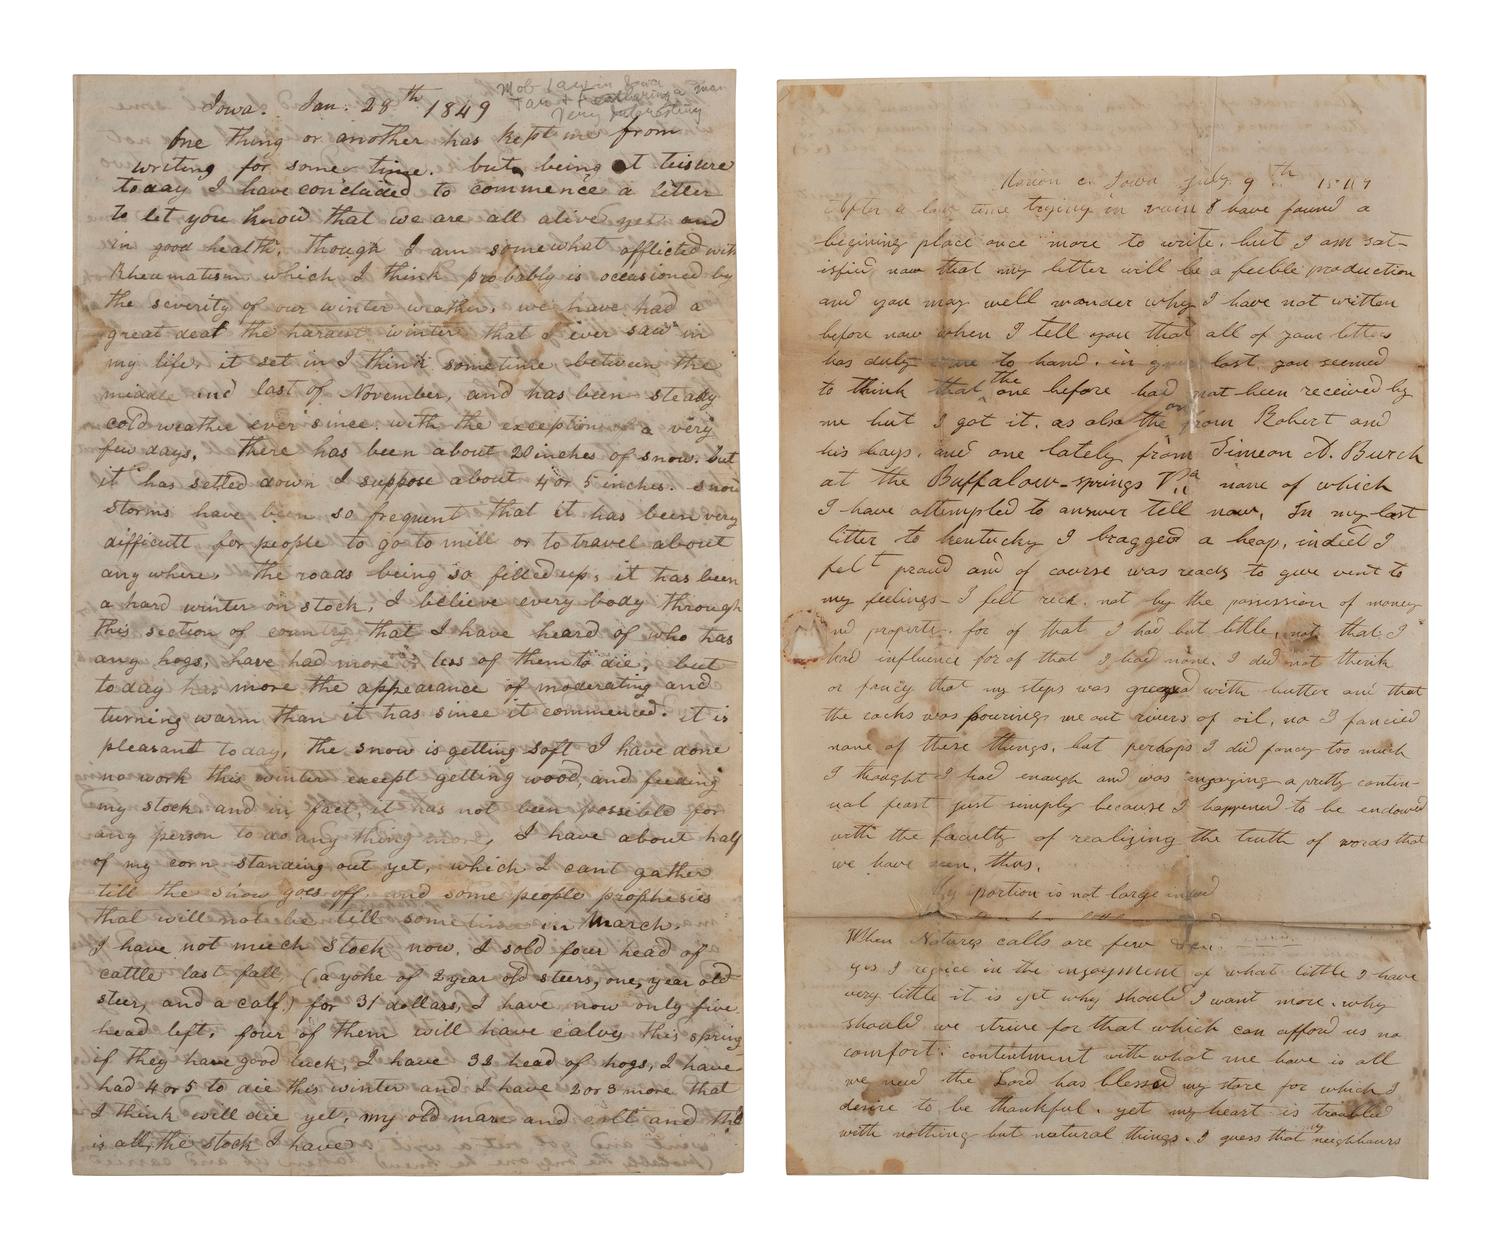 Mob Law in Iowa
Tar & Feathering a man
Very Interesting
Iowa. Jan. 28th 1849
One thing or another has kept me from
writing for some time. but being at leisure
today I have concluded to commence a letter
to let you know that we are all alive yet and
in good health, though I am somewhat afflicted with
Rheumatism which I think probably is occasioned by
the severity of our winter weather, we have had a
great deal the hardest winter that I ever saw in
my life, it set in I think sometime between the
middle and last of November, and has been steady
cold weather ever since. with the exception of a very
few days, there has been about 20 inches of snow. but
it has settled down I suppose about 4 or 5 inches. snow
storms have been so frequent that it has been very
difficult for people to go to mill or to travel about
any where, the roads being so filled up, it has been
a hard winter on stock, I believe every body through
this section of country that I have heard of who has
any hogs, have had more or less of them to die, but
today has more the appearance of moderating and
turning warm than it has since it commenced. it is
pleasant today, the snow is getting soft I have done
no work this winter except getting wood, and feeding
my stock. and in fact, it has not been possible for
any person to do any thing more, I have about half
of my corn standing out yet, which I cant gather
till the snow goes off. and some people prophesies
that will not be till sometime in March.
I have not much stock now, I sold four head of
cattle last fall (a yoke of 2 year old steers, one, year old
steer, and a calf) for 31 dollars, I have now only five
head left, four of them will have calves this spring
if they have good luck, I have 38 head of hogs, I have
had 4 or 5 to die this winter and I have 2 or 3 more that
I think will die yet, my old mare and colt and this
is all the stock I have
Marion c. Iowa July 9th
After a long time trying in vain I have found a
begining place once more to write, but I am sat-
isfied now that my letter will be a feeble production
and you may well wonder why I have not written
before now when I tell you that all of your letters
has duly come to hand. in your last you seemed
to think that the one before had not been received by
me but I got it. as also the on from Robert and
his boys, and one lately from Simeon A. Burch
at the Buffalow-springs Va none of which
I have attempted to answer tell now, In my last
litter to kentucky I bragged a heap, indeed I
felt proud and of course was ready to give vent to
my feelings - I felt rich. not by the possession of money
nd property. for of that I had but little, not that I
had influence for of that I had none. I did not think
or fancy that my steps was greased with butter and that
the rocks was pouring me out rivers of oil, no I fancied
none of these things, but perhaps I did fancy too much
I thought I had enough and was enjoying a pretty contin-
ual feast just simply because I happened to be endowed
with the faculty of realizing the truth of words that
we have seen, thus,
My portion is not large indeed
When Natures calls are few
yes I rejoice in the injoyment of what little I have
very little it is yet why should I want more. why
should we strive for that which can afford us no
comfort. contentment with what we have is all
we need the Lord has blessed my store for which I
desire to be thankful. yet my heart is troubled
with nothing but natural things. I guess that my neighbours